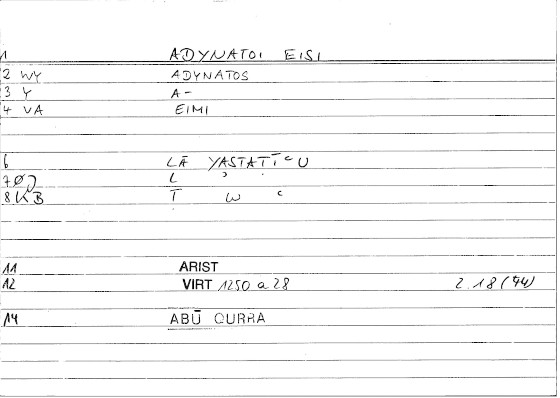 1 ADYNATOI EISI
2 WY ADYNATOS
3 Y A-
4 VA EIMI
6 LĀ YASTATĪʿU
7 ØJ L ʾ
8 KB T W ʿ
11 ARIST
12 VIRT 1250 a 28 2.18 (94)
14 ABŪ QURRA